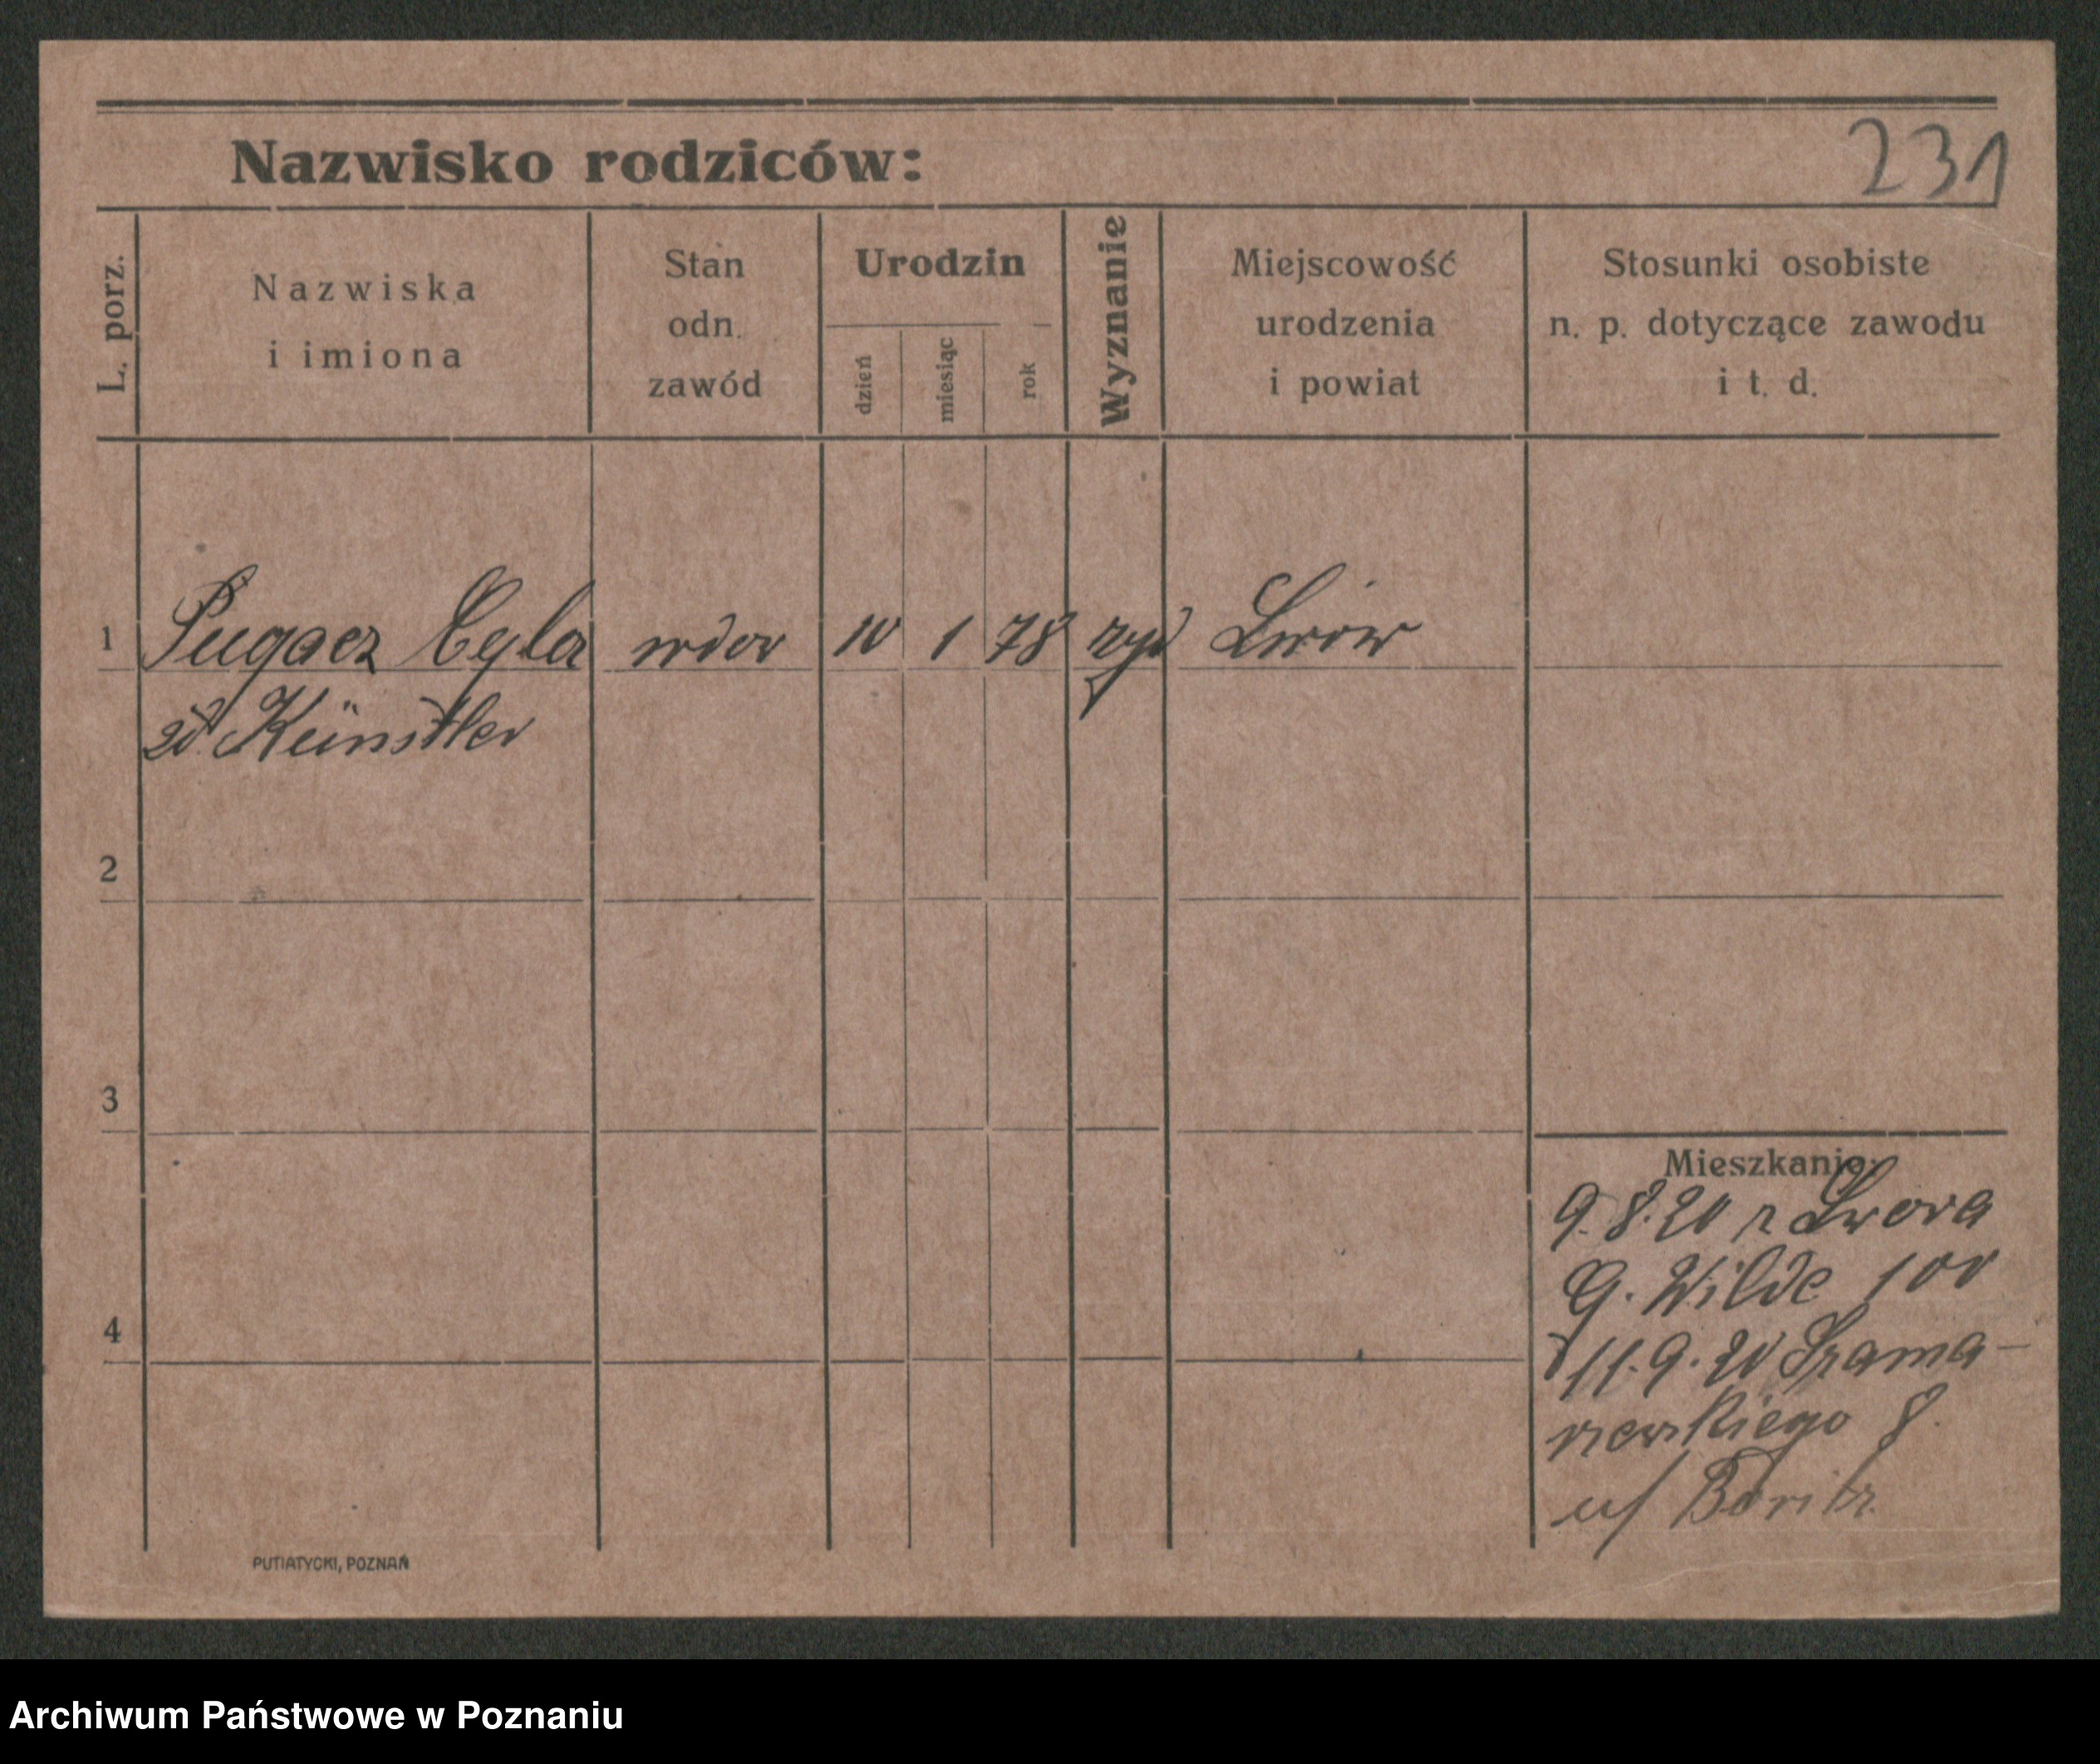 Nazwisko rodziców:
231
L. porz.
Nazwiska
i imiona
Stan
odn.
zawód
Urodzin
dzień
miesiąc
rok
Wyznanie
Miejscowość
urodzenia
i powiat
Stosunki osobiste
n. p. dotyczące zawodu
i t. d.
1 Pugacz Cyla wdow 10 1 78 żyd Lwów
zd. Künstler
2
3
4
Mieszkanie:
9.8.20 z Lwowa
G. Wilde 100
11.9.20 Szama-
rzewskiego 8.
u/
PUTIATYCKI, POZNAŃ
Archiwum Państwowe w Poznaniu